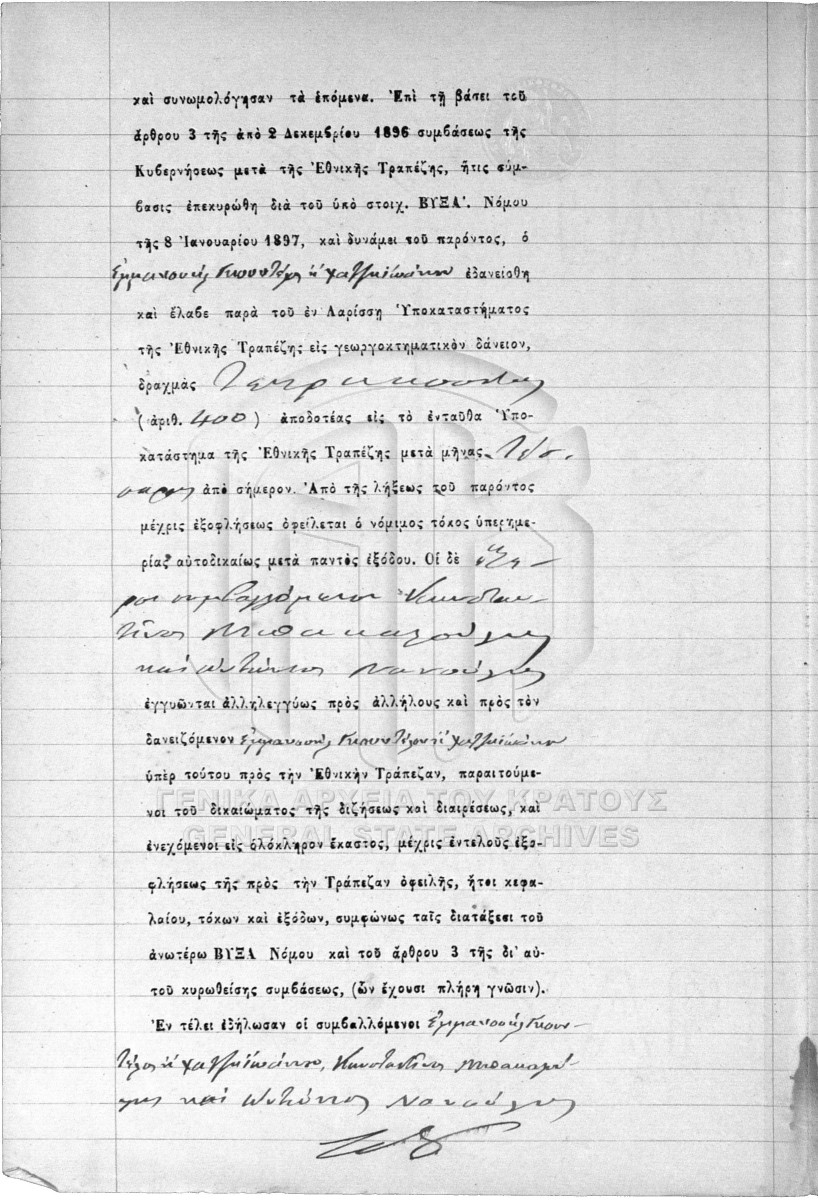 καὶ συνωμολόγησαν τὰ ἑπόμενα. Ἐπὶ τῇ βάσει τοῦ
ἄρθρου 3 τῆς ἀπὸ 2 Δεκεμβρίου 1896 συμβάσεως τῆς
Κυβερνήσεως μετὰ τῆς Ἐθνικῆς Τραπέζης, ἥτις σύμ-
βασις ἐπεκυρώθη διὰ τοῦ ὑπὸ στοιχ. ΒΥΞΑ'. Νόμου
τῆς 8 Ἰανουαρίου 1897, καὶ δυνάμει τοῦ παρόντος, ὁ
Ἐμμανουὴλ Γκουντέλος ἢ Χατζηϊωάννου ἐδανείσθη
καὶ ἔλαβε παρὰ τοῦ ἐν Λαρίσσῃ Ὑποκαταστήματος
τῆς Ἐθνικῆς Τραπέζης εἰς γεωργοκτηματικὸν δάνειον,
δραχμὰς Τετρακοσίας
(ἀριθ. 400) ἀποδοτέας εἰς τὸ ἐνταῦθα Ὑπο-
κατάστημα τῆς Ἐθνικῆς Τραπέζης μετὰ μῆνας Τέσ-
σαρας ἀπὸ σήμερον. Ἀπὸ τῆς λήξεως τοῦ παρόντος
μέχρις ἐξοφλήσεως ὀφείλεται ὁ νόμιμος τόκος ὑπερημε-
ρίας αὐτοδικαίως μετὰ παντὸς ἐξόδου. Οἱ δὲ
συμβαλλόμενοι Κωνσταν-
τῖνος Μπακαλούλης
καὶ Ἀντώνιος Νανούλης
ἐγγυῶνται ἀλληλεγγύως πρὸς ἀλλήλους καὶ πρὸς τὸν
δανειζόμενον Ἐμμανουὴλ Γκουντέλον ἢ Χατζηϊωάννου
ὑπὲρ τούτου πρὸς τὴν Ἐθνικὴν Τράπεζαν, παραιτούμε-
νοι τοῦ δικαιώματος τῆς διζήσεως καὶ διαιρέσεως, καὶ
ΓΕΝΙΚΑ ΑΡΧΕΙΑ ΤΟΥ ΚΡΑΤΟΥΣ
GENERAL STATE ARCHIVES
ἐνεχόμενοι εἰς ὁλόκληρον ἕκαστος, μέχρις ἐντελοῦς ἐξο-
φλήσεως τῆς πρὸς τὴν Τράπεζαν ὀφειλῆς, ἤτοι κεφα-
λαίου, τόκων καὶ ἐξόδων, συμφώνως ταῖς διατάξεσι τοῦ
ἀνωτέρω ΒΥΞΑ Νόμου καὶ τοῦ ἄρθρου 3 τῆς δι' αὐ-
τοῦ κυρωθείσης συμβάσεως, (ὧν ἔχουσι πλήρη γνῶσιν).
Ἐν τέλει ἐδήλωσαν οἱ συμβαλλόμενοι Ἐμμανουὴλ Γκουν-
τέλος ἢ Χατζηϊωάννου, Κωνσταντῖνος Μπακαλού-
λης καὶ Ἀντώνιος Νανούλης